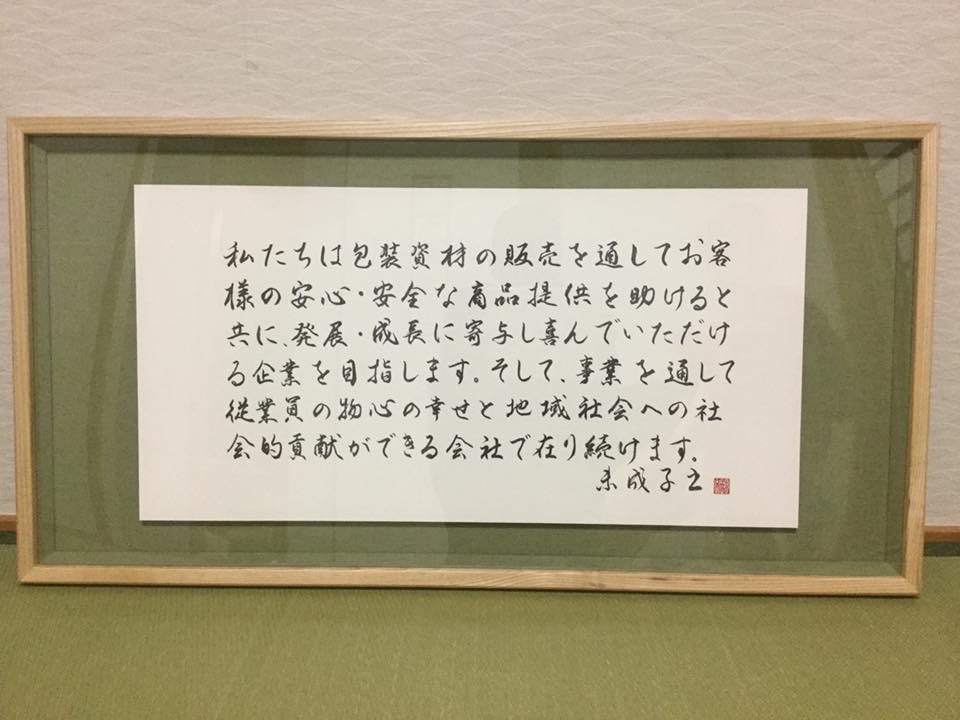 私たちは包装資材の販売を通してお客
様の安心・安全な商品提供を助けると
共に、発展・成長に寄与し喜んでいただけ
る企業を目指します。そして、事業を通して
従業員の物心の幸せと地域社会への社
会的貢献ができる会社で在り続けます。
未成子書